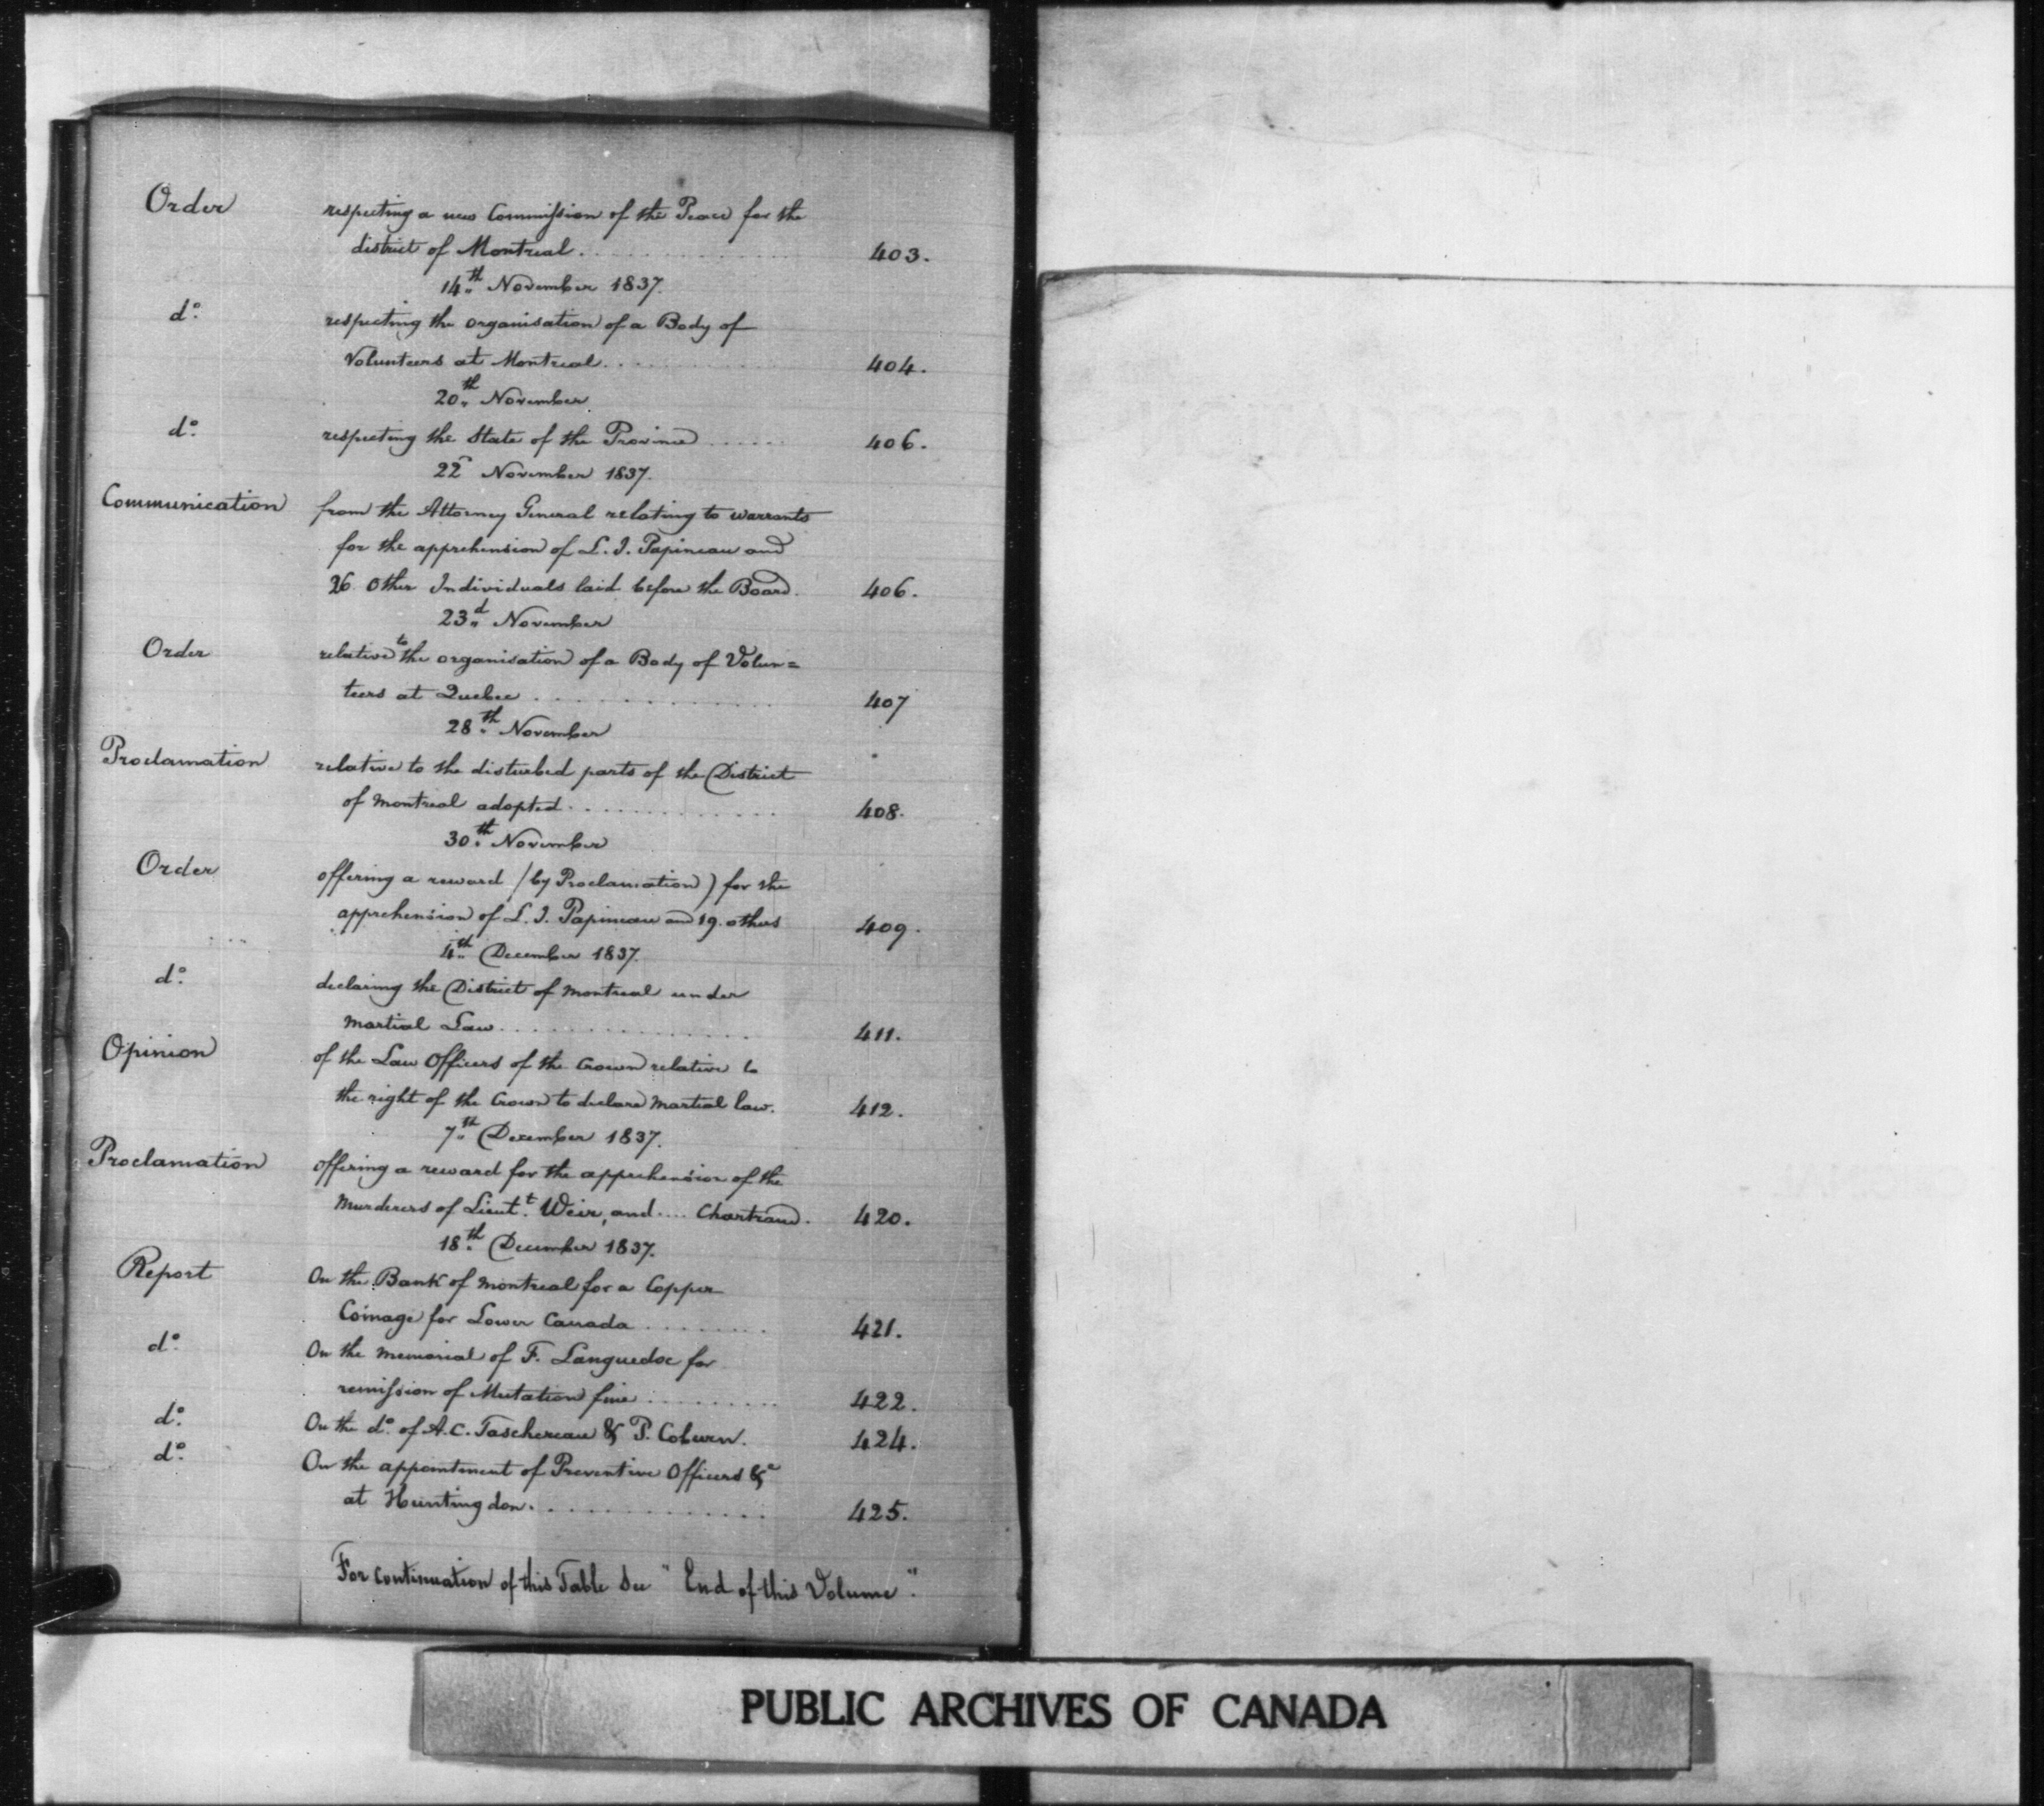 Order respecting a new Commission of the Peace for the
district of Montreal. . . . . . . . . . . . 403.
14th November 1837.
do. respecting the organisation of a Body of
Volunteers at Montreal. . . . . . . . . . . 404.
20th November
do. respecting the State of the Province . . . . . . 406.
22d November 1837.
Communication from the Attorney General relating to warrants
for the apprehension of L. J. Papineau and
26 Other Individuals laid before the Board. 406.
23d November
Order relative to the organisation of a Body of Volun=
teers at Quebec . . . . . . . . . . . . . 407
28th November
Proclamation relative to the disturbed parts of the District
of Montreal adopted. . . . . . . . . . . . 408.
30th November
Order offering a reward /by Proclamation) for the
apprehension of L. J. Papineau and 19. others 409.
4th December 1837.
do. declaring the District of Montreal under
Martial Law. . . . . . . . . . . . . . 411.
Opinion of the Law Officers of the Crown relative to
the right of the Crown to declare Martial law. 412.
7th December 1837.
Proclamation offering a reward for the apprehension of the
Murderers of Lieutt. Weir, and .... Chartrand. 420.
18th December 1837.
Report On the Bank of Montreal for a Copper
Coinage for Lower Canada . . . . . . . . 421.
do. On the Memorial of F. Languedoc for
remission of Mutation fine . . . . . . . . . 422.
do. On the do. of A. C. Taschereau & P. Coburn. 424.
do. On the appointment of Preventive Officers &a
at Huntingdon. . . . . . . . . . . . . 425.
For continuation of this Table See "End of this Volume".
PUBLIC ARCHIVES OF CANADA